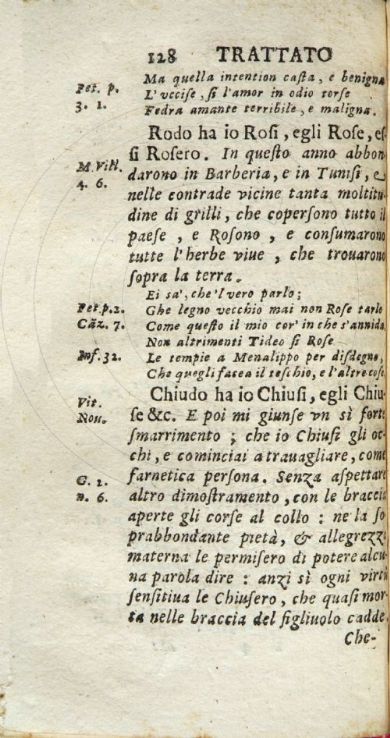 128 TRATTATO
Pet. p. 3. 1.
Ma quella intention casta, e benigna
L'vccise, sì l'amor in odio torse
Fedra amante terribile, e maligna.
Rodo ha io Rosi, egli Rose, es-
si Rosero. In questo anno abbon
M. Vill. 4. 6.
darono in Barberia, e in Tunisi, e
nelle contrade vicine tanta moltitu-
dine di grilli, che copersono tutto il
paese, e Rosono, e consumarono
tutte l'herbe viue, che trouarono
sopra la terra.
Ei sa', che'l vero parlo;
Pet. p. 2. Cãz. 7.
Ghe legno vecchio mai non Rose tarlo
Come questo il mio cor' in che s'annida.
Non altrimenti Tideo si Rose
Inf. 32.
Le tempie a Menalippo per disdegno,
Che quegli facea il teschio, e l'altre cose.
Chiudo ha io Chiusi, egli Chiu-
Vit. Nou.
se &c. E poi mi giunse vn sì forte
smarrimento; che io Chiusi gli oc-
chi, e cominciai a trauagliare, come
farnetica persona. Senza aspettare
G. 2. n. 6.
altro dimostramento, con le braccia
aperte gli corse al collo: ne la so
prabbondante pietà, & allegrezza
materna le permisero di potere alcu-
na parola dire: anzi sì ogni virtù
sensitiua le Chiusero, che quasi mor-
ta nelle braccia del figliuolo cadde.
Che-